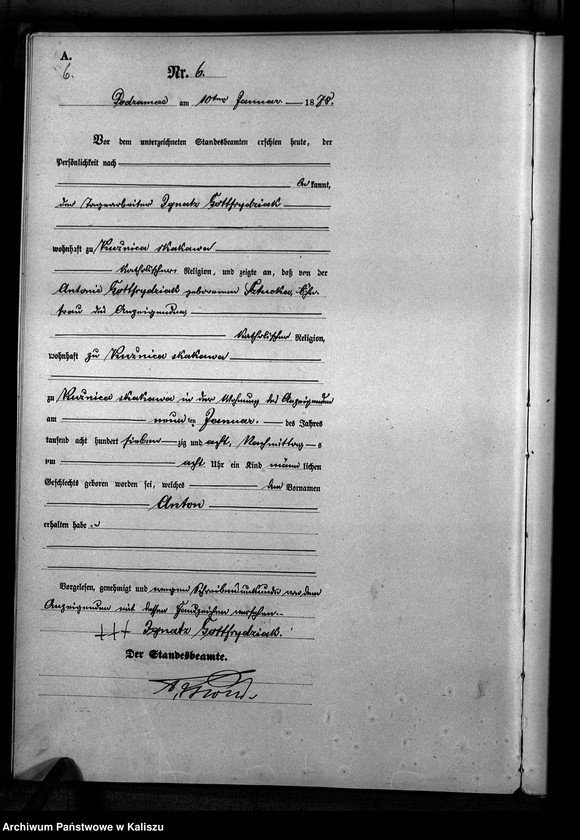 A.
6.
Nr. 6.
Podzamcze am 10ten Januar 1878.
Vor dem unterzeichneten Standesbeamten erschien heute, der
Persönlichkeit nach
bekannt,
der Tagearbeiter Ignatz Gottfrydziak
wohnhaft zu Kuźnica skakawa
katholischer Religion, und zeigte an, daß von der
Antonie Gottfrydziak geborenen Ehe-
frau des Anzeigenden,
katholischer Religion,
wohnhaft zu Kuźnica skakawa
zu Kuźnica skakawa in der Wohnung des Anzeigenden
am neunten Januar des Jahres
tausend acht hundert siebenzig und acht, Nachmittags
um acht Uhr ein Kind männlichen
Geschlechts geboren worden sei, welches den Vornamen
Anton
erhalten habe.
Vorgelesen, genehmigt und wegen Schreibensunkunde von dem
Anzeigenden mit dessen Handzeichen versehen.
+++ Ignatz Gottfrydziak.
Der Standesbeamte.
Archiwum Państwowe w Kaliszu